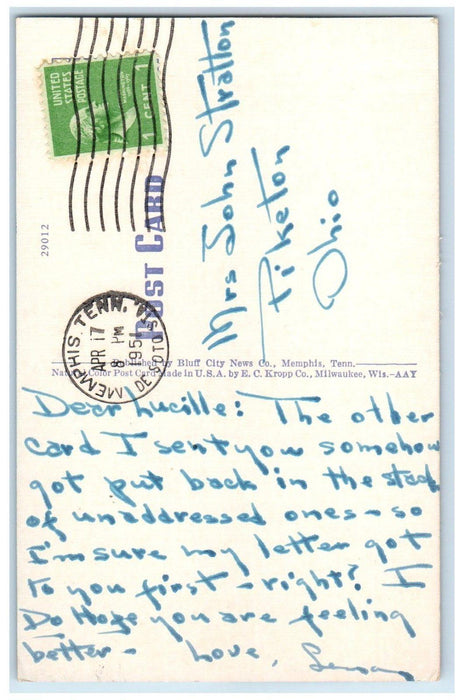 UNITED
STATES
POSTAGE
1 CENT 1
29012
POST CARD
Mrs John Stratton
Piketon
Ohio
MEMPHIS, TENN.
APR 17
8 PM
1951
DE SOTO STA.
by Bluff City News Co., Memphis, Tenn.
Color Post Card Made in U.S.A. by E. C. Kropp Co., Milwaukee, Wis.-AAY
Dear Lucille: The other
card I sent you somehow
got put back in the stack
of unaddressed ones - so
I'm sure my letter got
to you first - right? I
Do Hope you are feeling
better - Love,